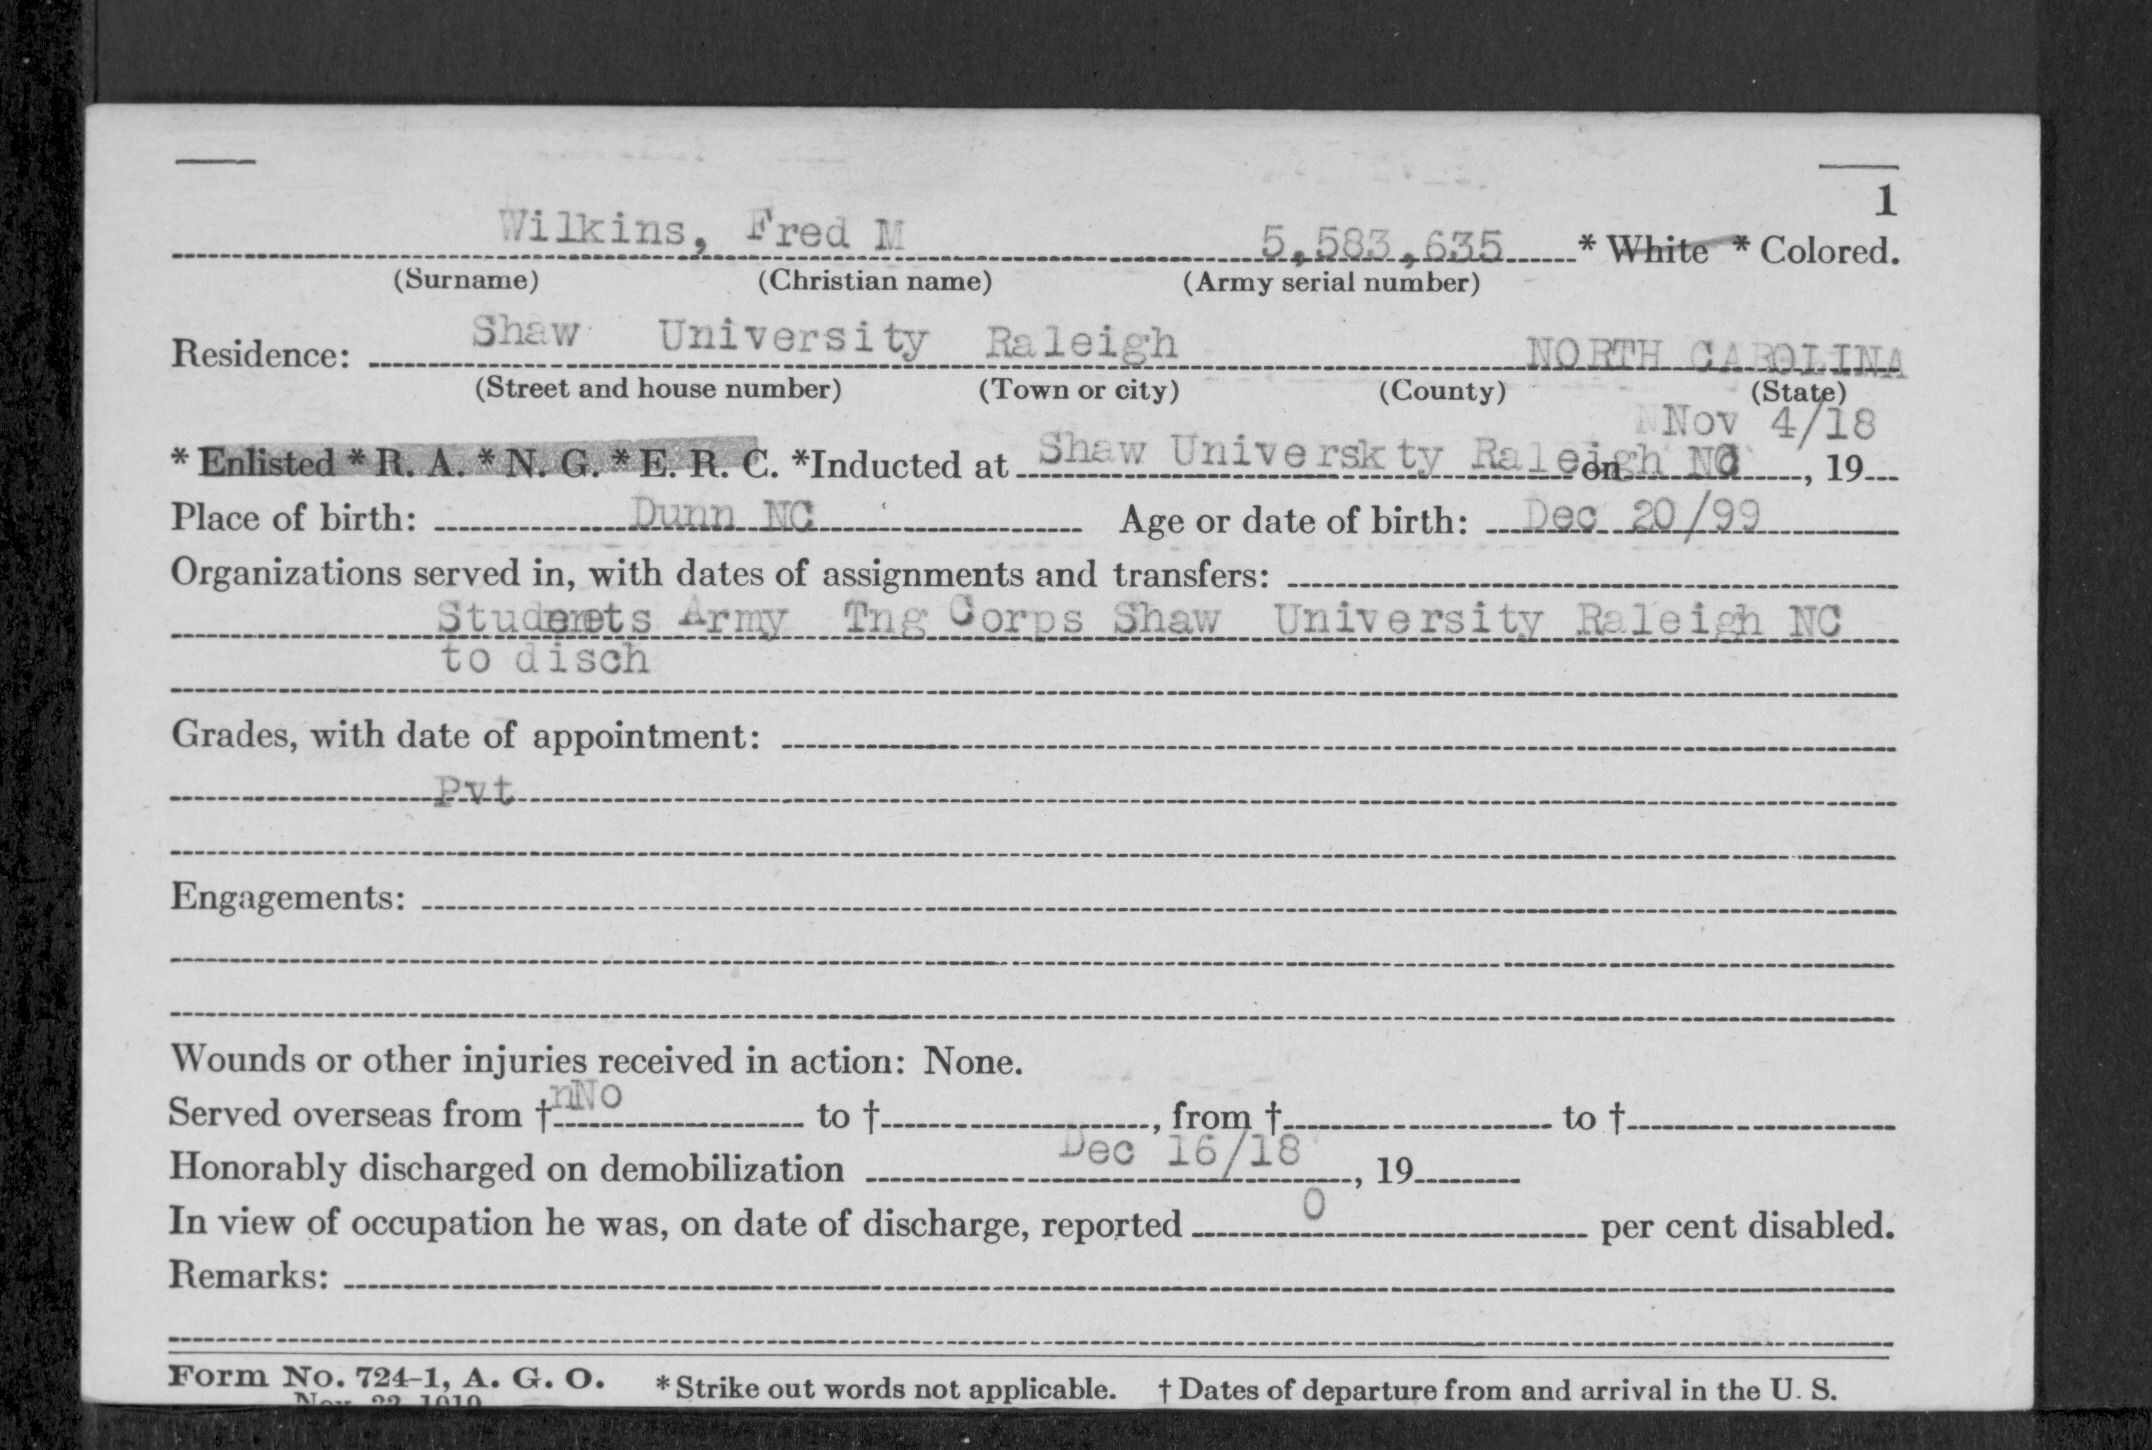 1
Wilkins, Fred M 5,583,635 * White * Colored.
(Surname) (Christian name) (Army serial number)
Residence: Shaw University Raleigh NORTH CAROLINA
(Street and house number) (Town or city) (County) (State)
NNov 4/18
* Enlisted * R. A. * N. G. * E. R. C. *Inducted at Shaw Universkty Raleigh NC on , 19
Place of birth: Dunn NC Age or date of birth: Dec 20/99
Organizations served in, with dates of assignments and transfers:
Students Army Tng Corps Shaw University Raleigh NC
to disch
Grades, with date of appointment:
Pvt
Engagements:
Wounds or other injuries received in action: None.
Served overseas from † nNo to † , from † to †
Honorably discharged on demobilization Dec 16/18 , 19
In view of occupation he was, on date of discharge, reported 0 per cent disabled.
Remarks:
Form No. 724-1, A. G. O. * Strike out words not applicable. † Dates of departure from and arrival in the U. S.
Nov. 22, 1919